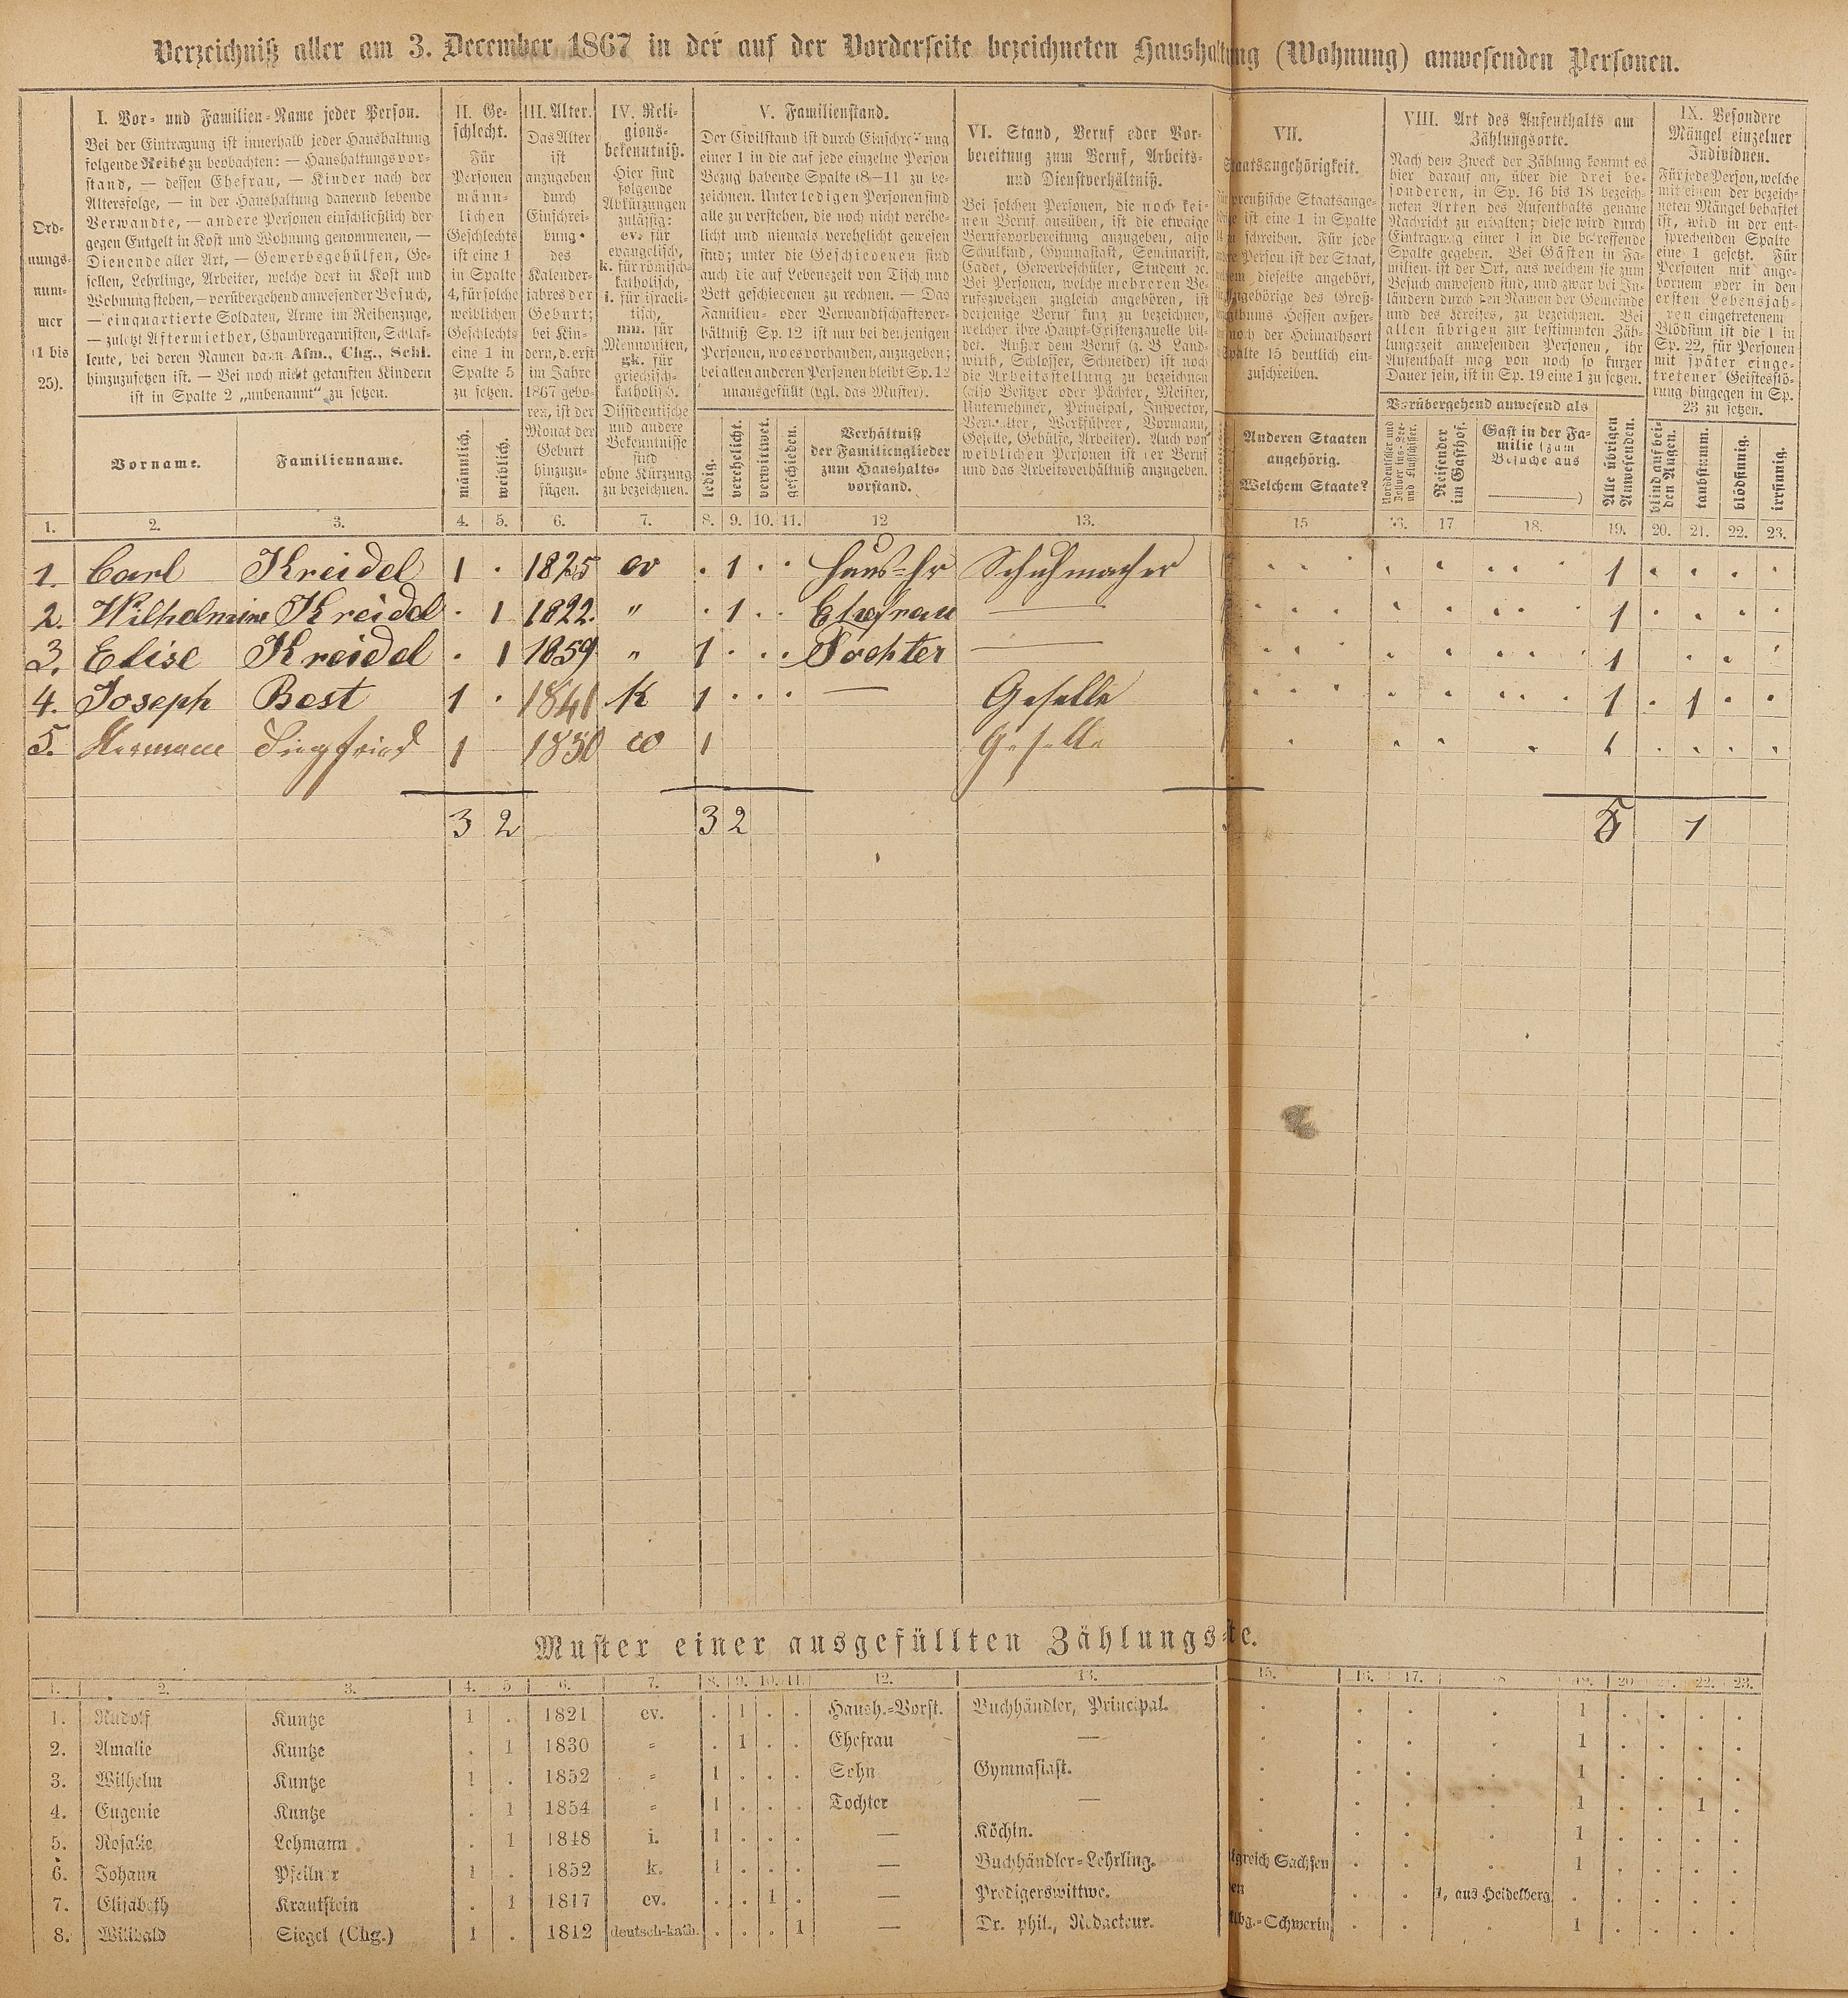 Verzeichniß aller am 3. December 1867 in der auf der Vorderseite bezeichneten Haushaltung (Wohnung) anwesenden Personen.
Ord-
nungs-
num-
mer
(1 bis
25).
I. Vor- und Familien-Name jeder Person.
Bei der Eintragung ist innerhalb jeder Haushaltung
folgende Reihe zu beobachten: — Haushaltungsvor-
stand, — dessen Ehefrau, — Kinder nach der
Altersfolge, — in der Haushaltung dauernd lebende
Verwandte, — andere Personen einschließlich der
gegen Entgelt in Kost und Wohnung genommenen, —
Dienende aller Art, — Gewerbsgehülfen, Ge-
sellen, Lehrlinge, Arbeiter, welche dort in Kost und
Wohnung stehen, — vorübergehend anwesender Besuch,
— einquartierte Soldaten, Arme im Reihenzuge,
— zuletzt Aftermiether, Chambregarnisten, Schlaf-
leute, bei deren Namen dann Afm., Chg., Schl.
hinzuzusetzen ist. — Bei noch nicht getauften Kindern
ist in Spalte 2 „unbenannt“ zu setzen.
Vorname.
Familienname.
II. Ge-
schlecht.
Für
Personen
männ-
lichen
Geschlechts
ist eine 1
in Spalte
4, für solche
weiblichen
Geschlechts
eine 1 in
Spalte 5
zu setzen.
männlich.
weiblich.
III. Alter.
Das Alter
ist
anzugeben
durch
Einschrei-
bung
des
Kalender-
jahres der
Geburt;
bei Kin-
dern, d. erst
im Jahre
1867 gebo-
ren, ist der
Monat der
Geburt
hinzuzu-
fügen.
IV. Reli-
gions-
bekenntniß.
Hier sind
folgende
Abkürzungen
zulässig:
ev. für
evangelisch,
k. für römisch-
katholisch,
i. für israeli-
tisch,
mn. für
Mennoniten,
gk. für
griechisch-
katholisch.
Dissidentische
und andere
Bekenntnisse
sind
ohne Kürzung
zu bezeichnen.
V. Familienstand.
Der Civilstand ist durch Einschreibung
einer 1 in die auf jede einzelne Person
Bezug habende Spalte (8—11 zu be-
zeichnen. Unter ledigen Personen sind
alle zu verstehen, die noch nicht verehe-
licht und niemals verehelicht gewesen
sind; unter die Geschiedenen sind
auch die auf Lebenszeit von Tisch und
Bett geschiedenen zu rechnen. — Das
Familien- oder Verwandtschaftsver-
hältniß Sp. 12 ist nur bei denjenigen
Personen, wo es vorhanden, anzugeben;
bei allen anderen Personen bleibt Sp. 12
unausgefüllt (vgl. das Muster).
ledig.
verehelicht.
verwittwet.
geschieden.
Verhältniß
der Familienglieder
zum Haushalts-
vorstand.
VI. Stand, Beruf oder Vor-
bereitung zum Beruf, Arbeits-
und Dienstverhältniß.
Bei solchen Personen, die noch kei-
nen Beruf ausüben, ist die etwaige
Berufsvorbereitung anzugeben, also
Schulkind, Gymnasiast, Seminarist,
Cadet, Gewerbeschüler, Student ec.
Bei Personen, welche mehreren Be-
rufszweigen zugleich angehören, ist
derjenige Beruf kurz zu bezeichnen,
welcher ihre Haupt-Existenzquelle bil-
det. Außer dem Beruf (z. B. Land-
wirth, Schlosser, Schneider) ist noch
die Arbeitsstellung zu bezeichnen
(also Besitzer oder Pächter, Meister,
Unternehmer, Principal, Inspector,
Verwalter, Werkführer, Vormann,
Geselle, Gehülfe, Arbeiter). Auch von
weiblichen Personen ist der Beruf
und das Arbeitsverhältniß anzugeben.
VII.
Staatsangehörigkeit.
preußische Staatsange-
ist eine 1 in Spalte
schreiben. Für jede
Person ist der Staat,
dieselbe angehört,
Angehörige des Groß-
Hessen außer-
noch der Heimathsort
Spalte 15 deutlich ein-
zuschreiben.
Anderen Staaten
angehörig.
Welchem Staate?
VIII. Art des Aufenthalts am
Zählungsorte.
Nach dem Zweck der Zählung kommt es
hier darauf an, über die drei be-
sonderen, in Sp. 16 bis 18 bezeich-
neten Arten des Aufenthalts genaue
Nachricht zu erhalten; diese wird durch
Eintragung einer 1 in die betreffende
Spalte gegeben. Bei Gästen in Fa-
milien ist der Ort, aus welchem sie zum
Besuch anwesend sind, und zwar bei In-
ländern durch den Namen der Gemeinde
und des Kreises, zu bezeichnen. Bei
allen übrigen zur bestimmten Zäh-
lungszeit anwesenden Personen, ihr
Aufenthalt mag von noch so kurzer
Dauer sein, ist in Sp. 19 eine 1 zu setzen.
Vorübergehend anwesend als
Norddeutscher und
Zollver. ins See-
und Flußschiffer.
Reisender
im Gasthof.
Gast in der Fa-
milie (zum
Besuche aus
)
Alle übrigen
Anwesenden.
IX. Besondere
Mängel einzelner
Individuen.
Für jede Person, welche
mit einem der bezeich-
neten Mängel behaftet
ist, wird in der ent-
sprechenden Spalte
eine 1 gesetzt. Für
Personen mit ange-
bornem oder in den
ersten Lebensjah-
ren eingetretenem
Blödsinn ist die 1 in
Sp. 22, für Personen
mit später einge-
tretener Geistesstö-
rung hingegen in Sp.
23 zu setzen.
blind auf bei-
den Augen.
taubstumm.
blödsinnig.
irrsinnig.
1. 2. 3. 4. 5. 6. 7. 8. 9. 10. 11. 12 13. 15 16. 17 18. 19. 20. 21. 22. 23.
1. Carl Kreidel 1 · 1825 ev · 1 · · Schuhmacher 1
2. Wilhelmine Kreidel · 1 1822. " · 1 · · Ehefrau — 1
3. Elise Kreidel · 1 1859 " 1 · · · Tochter — 1
4. Joseph Best 1 · 1841 K 1 · · · — Geselle 1 · 1 · ·
5. Hermann Siegfried 1 1850 ev 1 Geselle 1
3 2 3 2 5 1
Muster einer ausgefüllten
1. 2. 3. 4. 5. 6. 7. 8. 9. 10. 11. 12. 13. 15. 16. 17. 18 19. 20 21. 22. 23.
1. Rudolf Kuntze 1 . 1821 ev. . 1 . . Haush.-Vorst. Buchhändler, Principal. . . . . 1 . . . .
2. Amalie Kuntze . 1 1830 = . 1 . . Ehefrau — . . . . 1 . . . .
3. Wilhelm Kuntze 1 . 1852 = 1 . . . Sohn Gymnasiast. . . . . 1 . . . .
4. Eugenie Kuntze . 1 1854 = 1 . . . Tochter — . . . . 1 . . 1 .
5. Rosalie Lehmann . 1 1848 i. 1 . . . — Köchin. . . . . 1 . . . .
6. Johann Pfeilner 1 . 1852 k. 1 . . . — Buchhändler-Lehrling. greich Sachsen . . . 1 . . . .
7. Elisabeth Krautstein . 1 1817 ev. . . 1 . — Predigerswittwe. en . . 1, aus Heidelberg . . . . .
8. Willibald Siegel (Chg.) 1 . 1812 deutsch-kath. . . . 1 — Dr. phil., Redacteur. lbg.-Schwerin . . . 1 . . . .